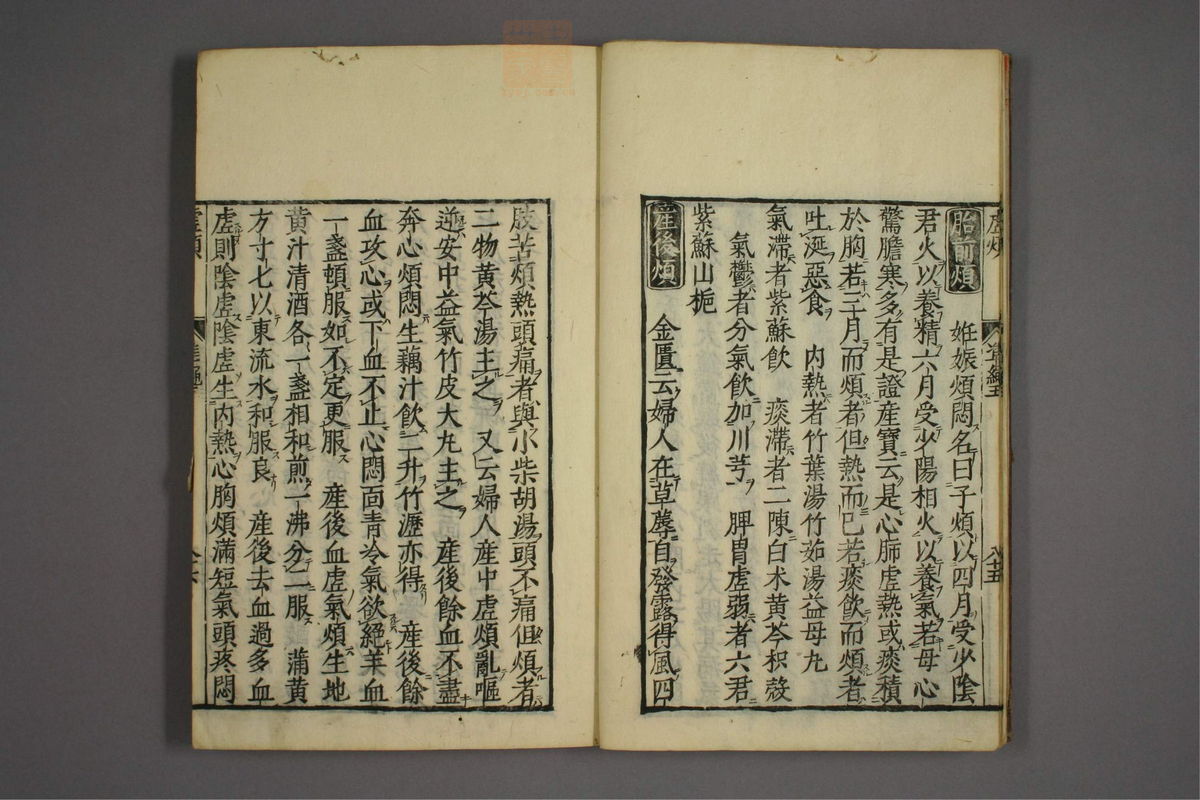 胎前煩　姙娠煩悶名曰子煩以四月受少陰
君火以養精六月受少陽相火以養氣若母心
驚膽寒多有是證産寶云是心肺虚熱或痰積
於胸若三月而煩者但熱而已若痰飲而煩者
吐涎惡食　内熱者竹葉湯竹茹湯益母丸
氣滞者紫蘇飲　痰滞者二陳白朮黄芩枳殻
氣鬱者分氣飲加川芎　脾胃虚弱者六君
紫蘇山梔
産後煩　金匱云婦人在草蓐自發露得風四
肢苦煩熱頭痛者與小柴胡湯頭不痛但煩者
二物黄芩湯主之　又云婦人産中虚煩亂嘔
逆安中益氣竹皮大丸主之　産後餘血不盡
奔心煩悶生藕汁飲二升竹瀝亦得　産後餘
血攻心或下血不止心悶面青冷氣欲絶羊血
一盞頓服如不定更服　産後血虚氣煩生地
黄汁清酒各一盞相和煎一沸分二服　蒲黄
方寸七以東流水和服良　産後去血過多血
虚則陰虚陰虚生内熱心胸煩滿短氣頭疼悶
虚煩